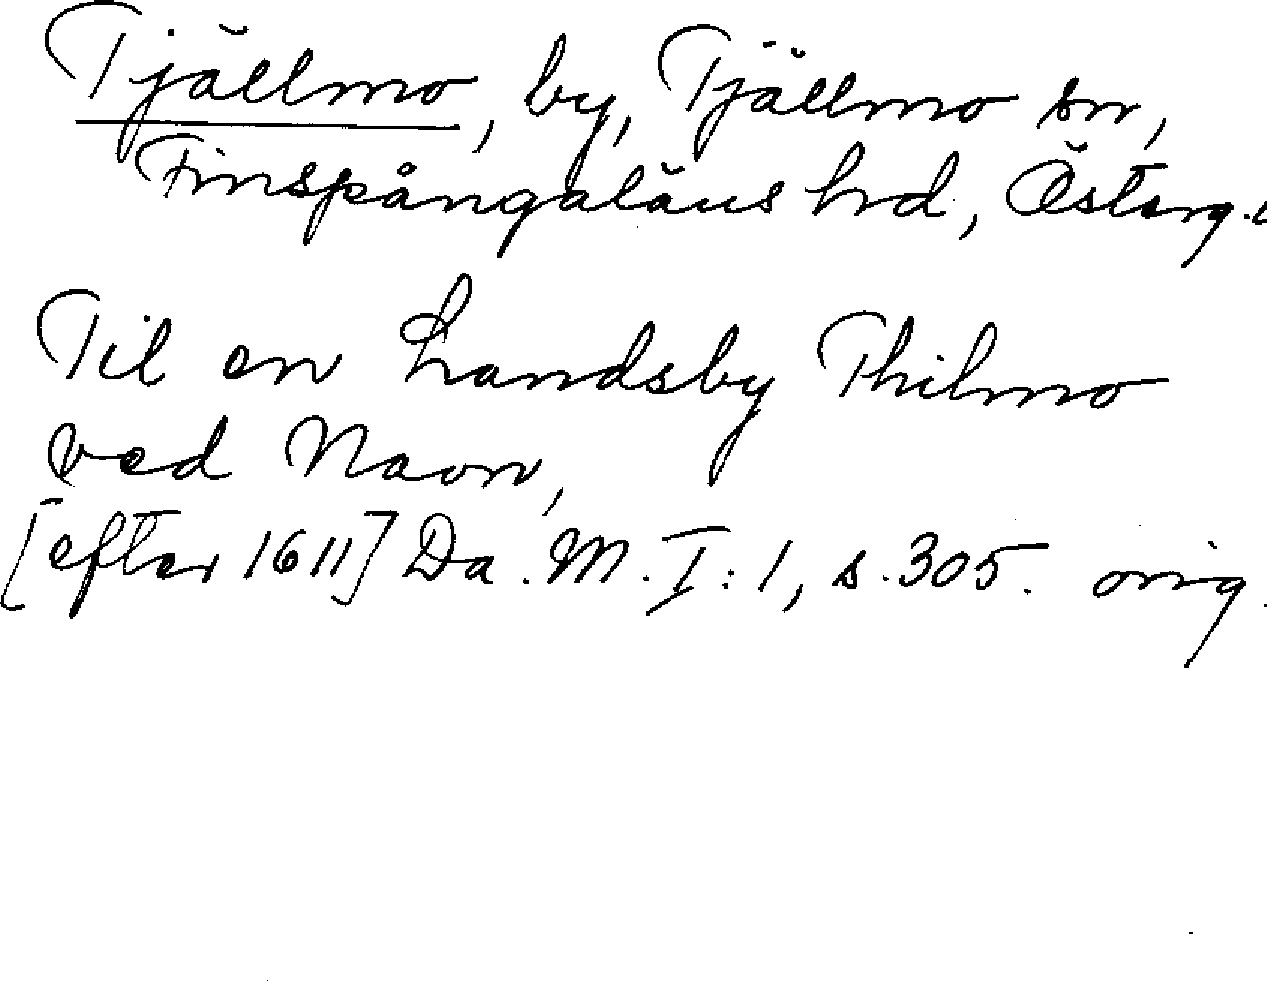 Tjällmo, by, Tjällmo sn,
Finspångaläns hd, Österg. l
Til en Landsby Thilmo
ved Navn,
[efter 1611] Da. M. I: 1, s. 305. orig.